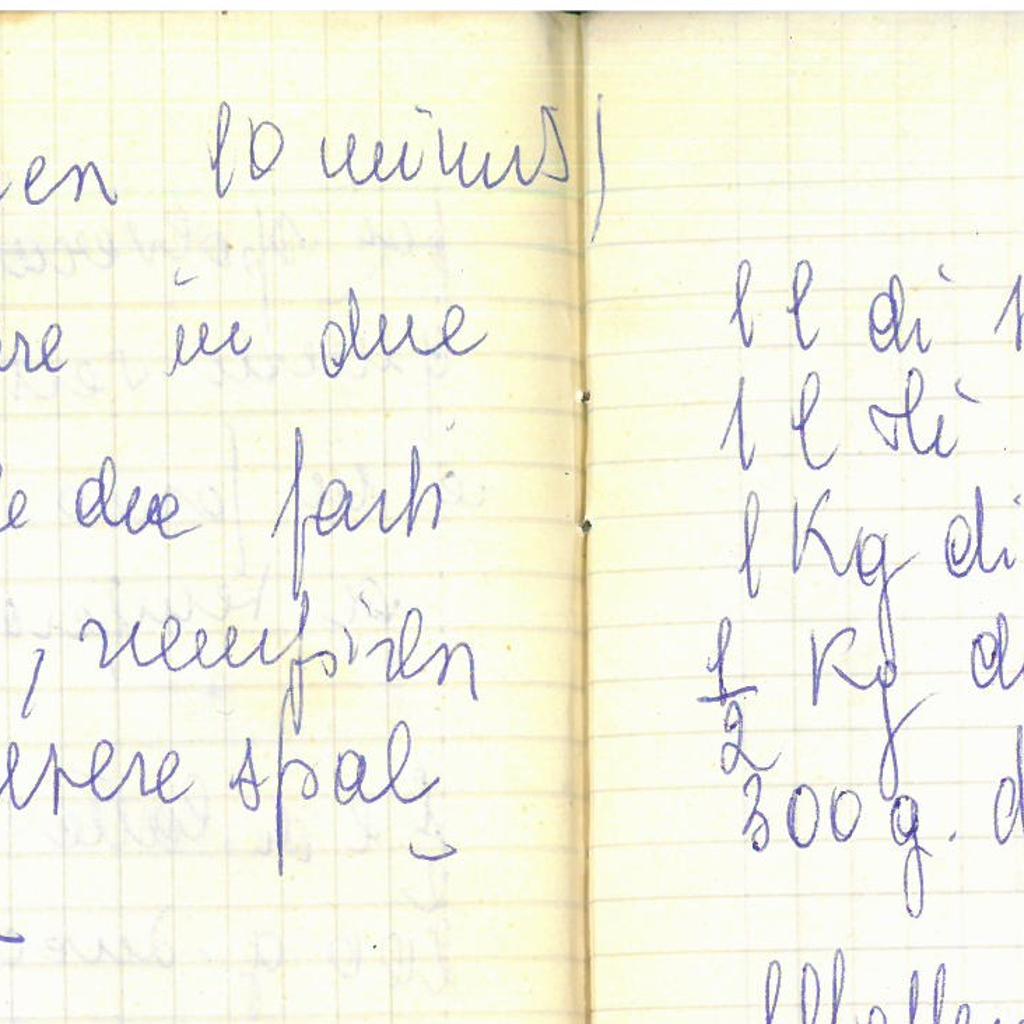 en 10 minuti)
re in due
le due parti
, riempirla
ettere spal
1 l di
1 l di
1 Kg di
1/2 Kg d
300 g. d